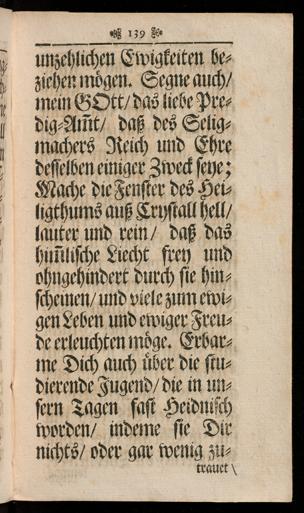 139
unzehlichen Ewigkeiten be⸗
ziehen mögen. Segne auch/
mein GOtt/ das liebe Pre⸗
dig⸗Am̃t/ daß des Selig⸗
machers Reich und Ehre
desselben einiger Zweck seye;
Mache die Fenster des Hei⸗
ligthums auß Crystall hell/
lauter und rein/ daß das
him̃lische Liecht frey und
ohngehindert durch sie hin⸗
scheinen/ und viele zum ewi⸗
gen Leben und ewiger Freu⸗
de erleuchten möge. Erbar⸗
me Dich auch über die stu⸗
dierende Jugend/ die in un⸗
sern Tagen fast Heidnisch
worden/ indeme sie Dir
nichts/ oder gar wenig zu⸗
trauet